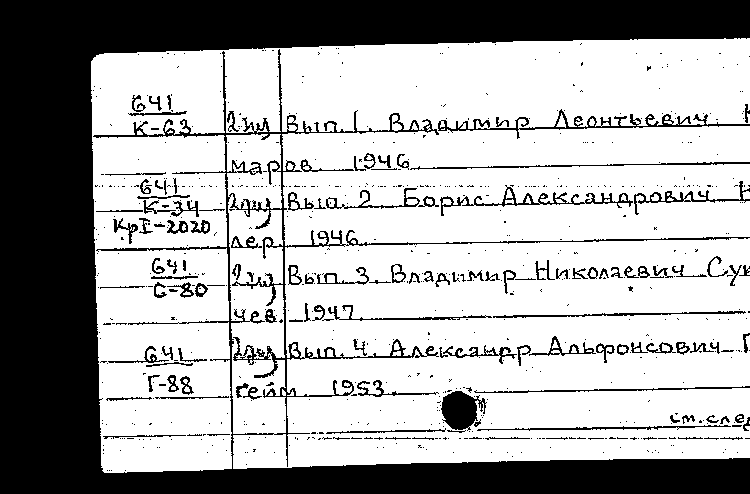 641
К-63 2 экз Вып. 1. Владимир Леонтьевич К
маров. 1946.
641
К-34 2 экз Вып. 2. Борис Александрович К
КрI-2020
лер. 1946.
641
С-80 2 экз Вып. 3. Владимир Николаевич Сук
чев. 1947.
641 2 экз Вып. 4. Александр Альфонсович Г
Г-88 гейм. 1953.
см. след